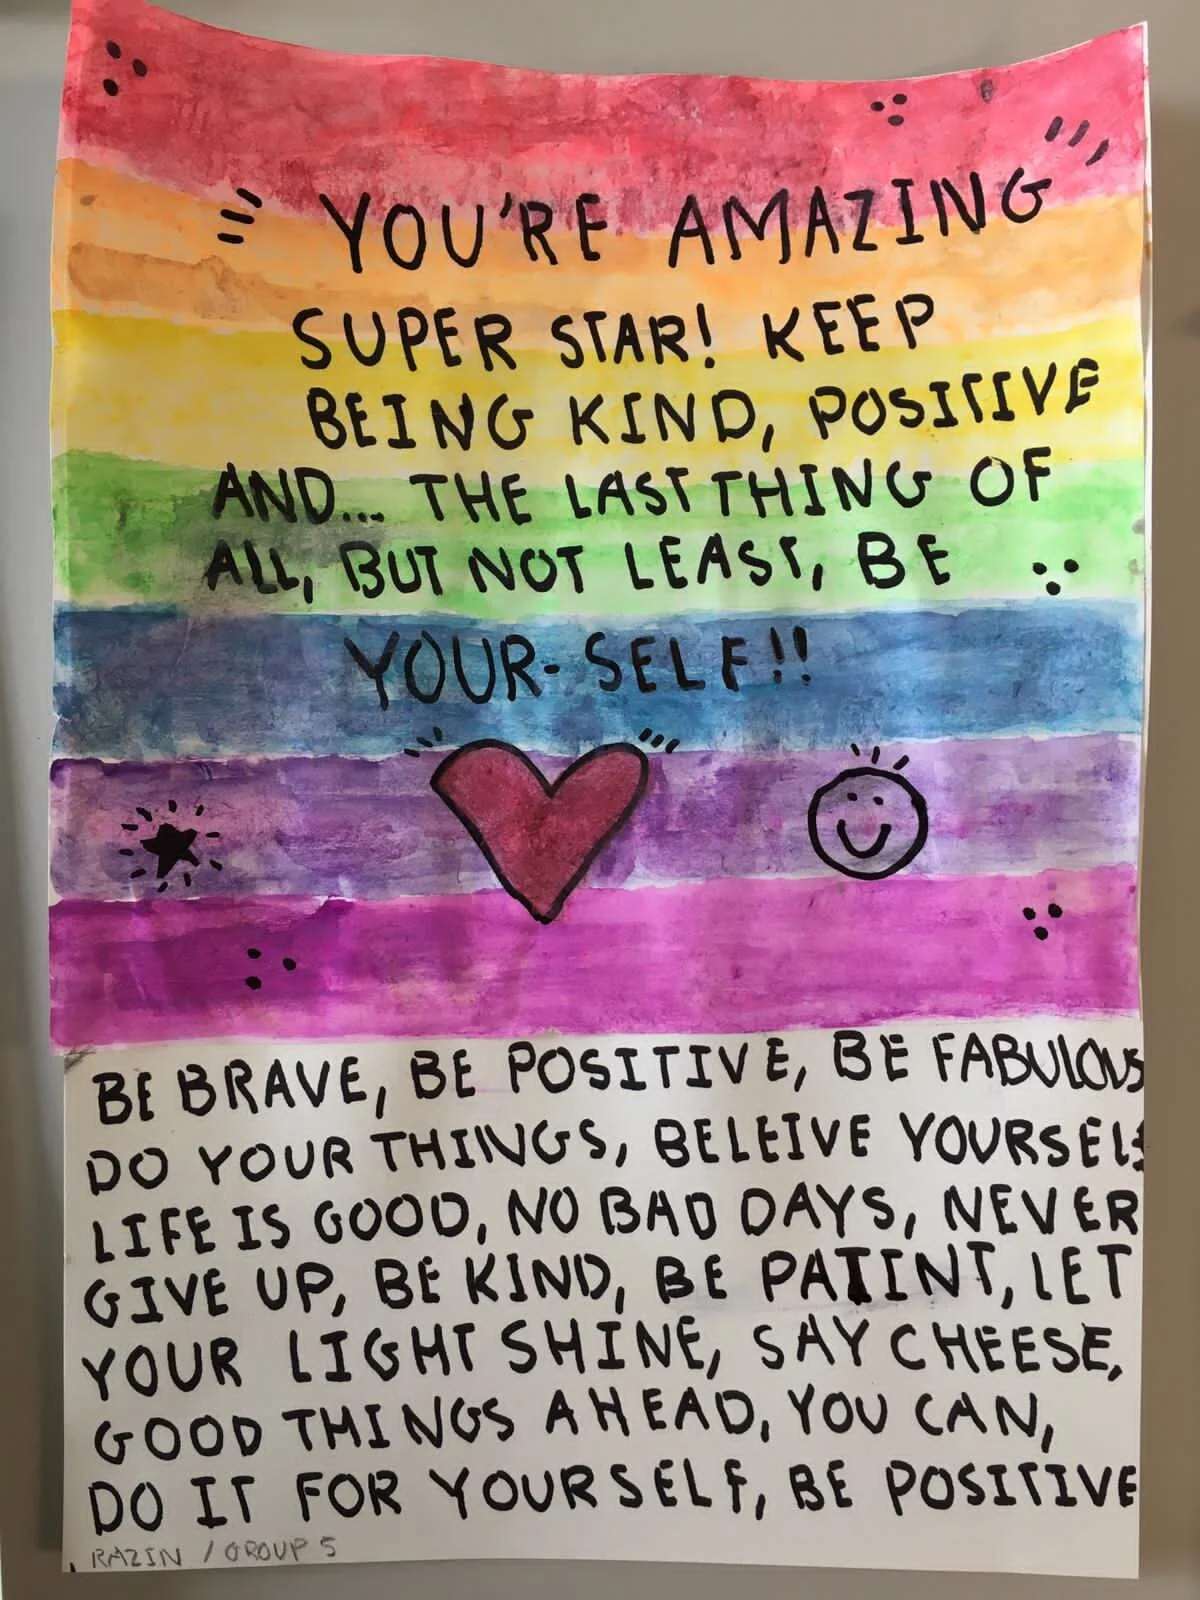 YOU'RE AMAZING
SUPER STAR! KEEP
BEING KIND, POSITIVE
AND... THE LAST THING OF
ALL, BUT NOT LEAST, BE
YOUR-SELF!!
BE BRAVE, BE POSITIVE, BE FABULOUS
DO YOUR THINGS, BELEIVE YOURSELF
LIFE IS GOOD, NO BAD DAYS, NEVER
GIVE UP, BE KIND, BE PATIENT, LET
YOUR LIGHT SHINE, SAY CHEESE,
GOOD THINGS AHEAD, YOU CAN,
DO IT FOR YOURSELF, BE POSITIVE
RAZIN / GROUP 5